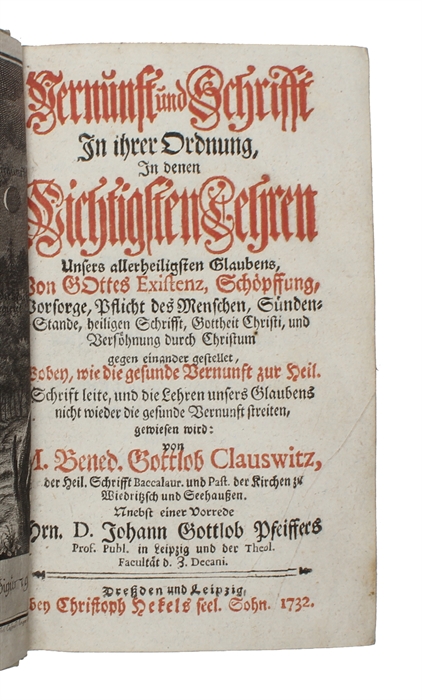 Vernunft und Schrifft
In ihrer Ordnung,
In denen
Wichtigsten Lehren
Unsers allerheiligsten Glaubens,
Von GOttes Existenz, Schöpffung,
Vorsorge, Pflicht des Menschen, Sünden-
Stande, heiligen Schrifft, Gottheit Christi, und
Versöhnung durch Christum
gegen einander gestellet,
Wobey, wie die gesunde Vernunft zur Heil.
Schrifft leite, und die Lehren unsers Glaubens
nicht wieder die gesunde Vernunft streiten,
gewiesen wird:
von
M. Bened. Gottlob Clauswitz,
der Heil. Schrifft Baccalaur. und Past. der Kirchen zu
Wiedritzsch und Seehaußen.
Nebst einer Vorrede
Hrn. D. Johann Gottlob Pfeiffers
Prof. Publ. in Leipzig und der Theol.
Facultät d. Z. Decani.
Dreßden und Leipzig,
bey Christoph Hekels seel. Sohn. 1732.